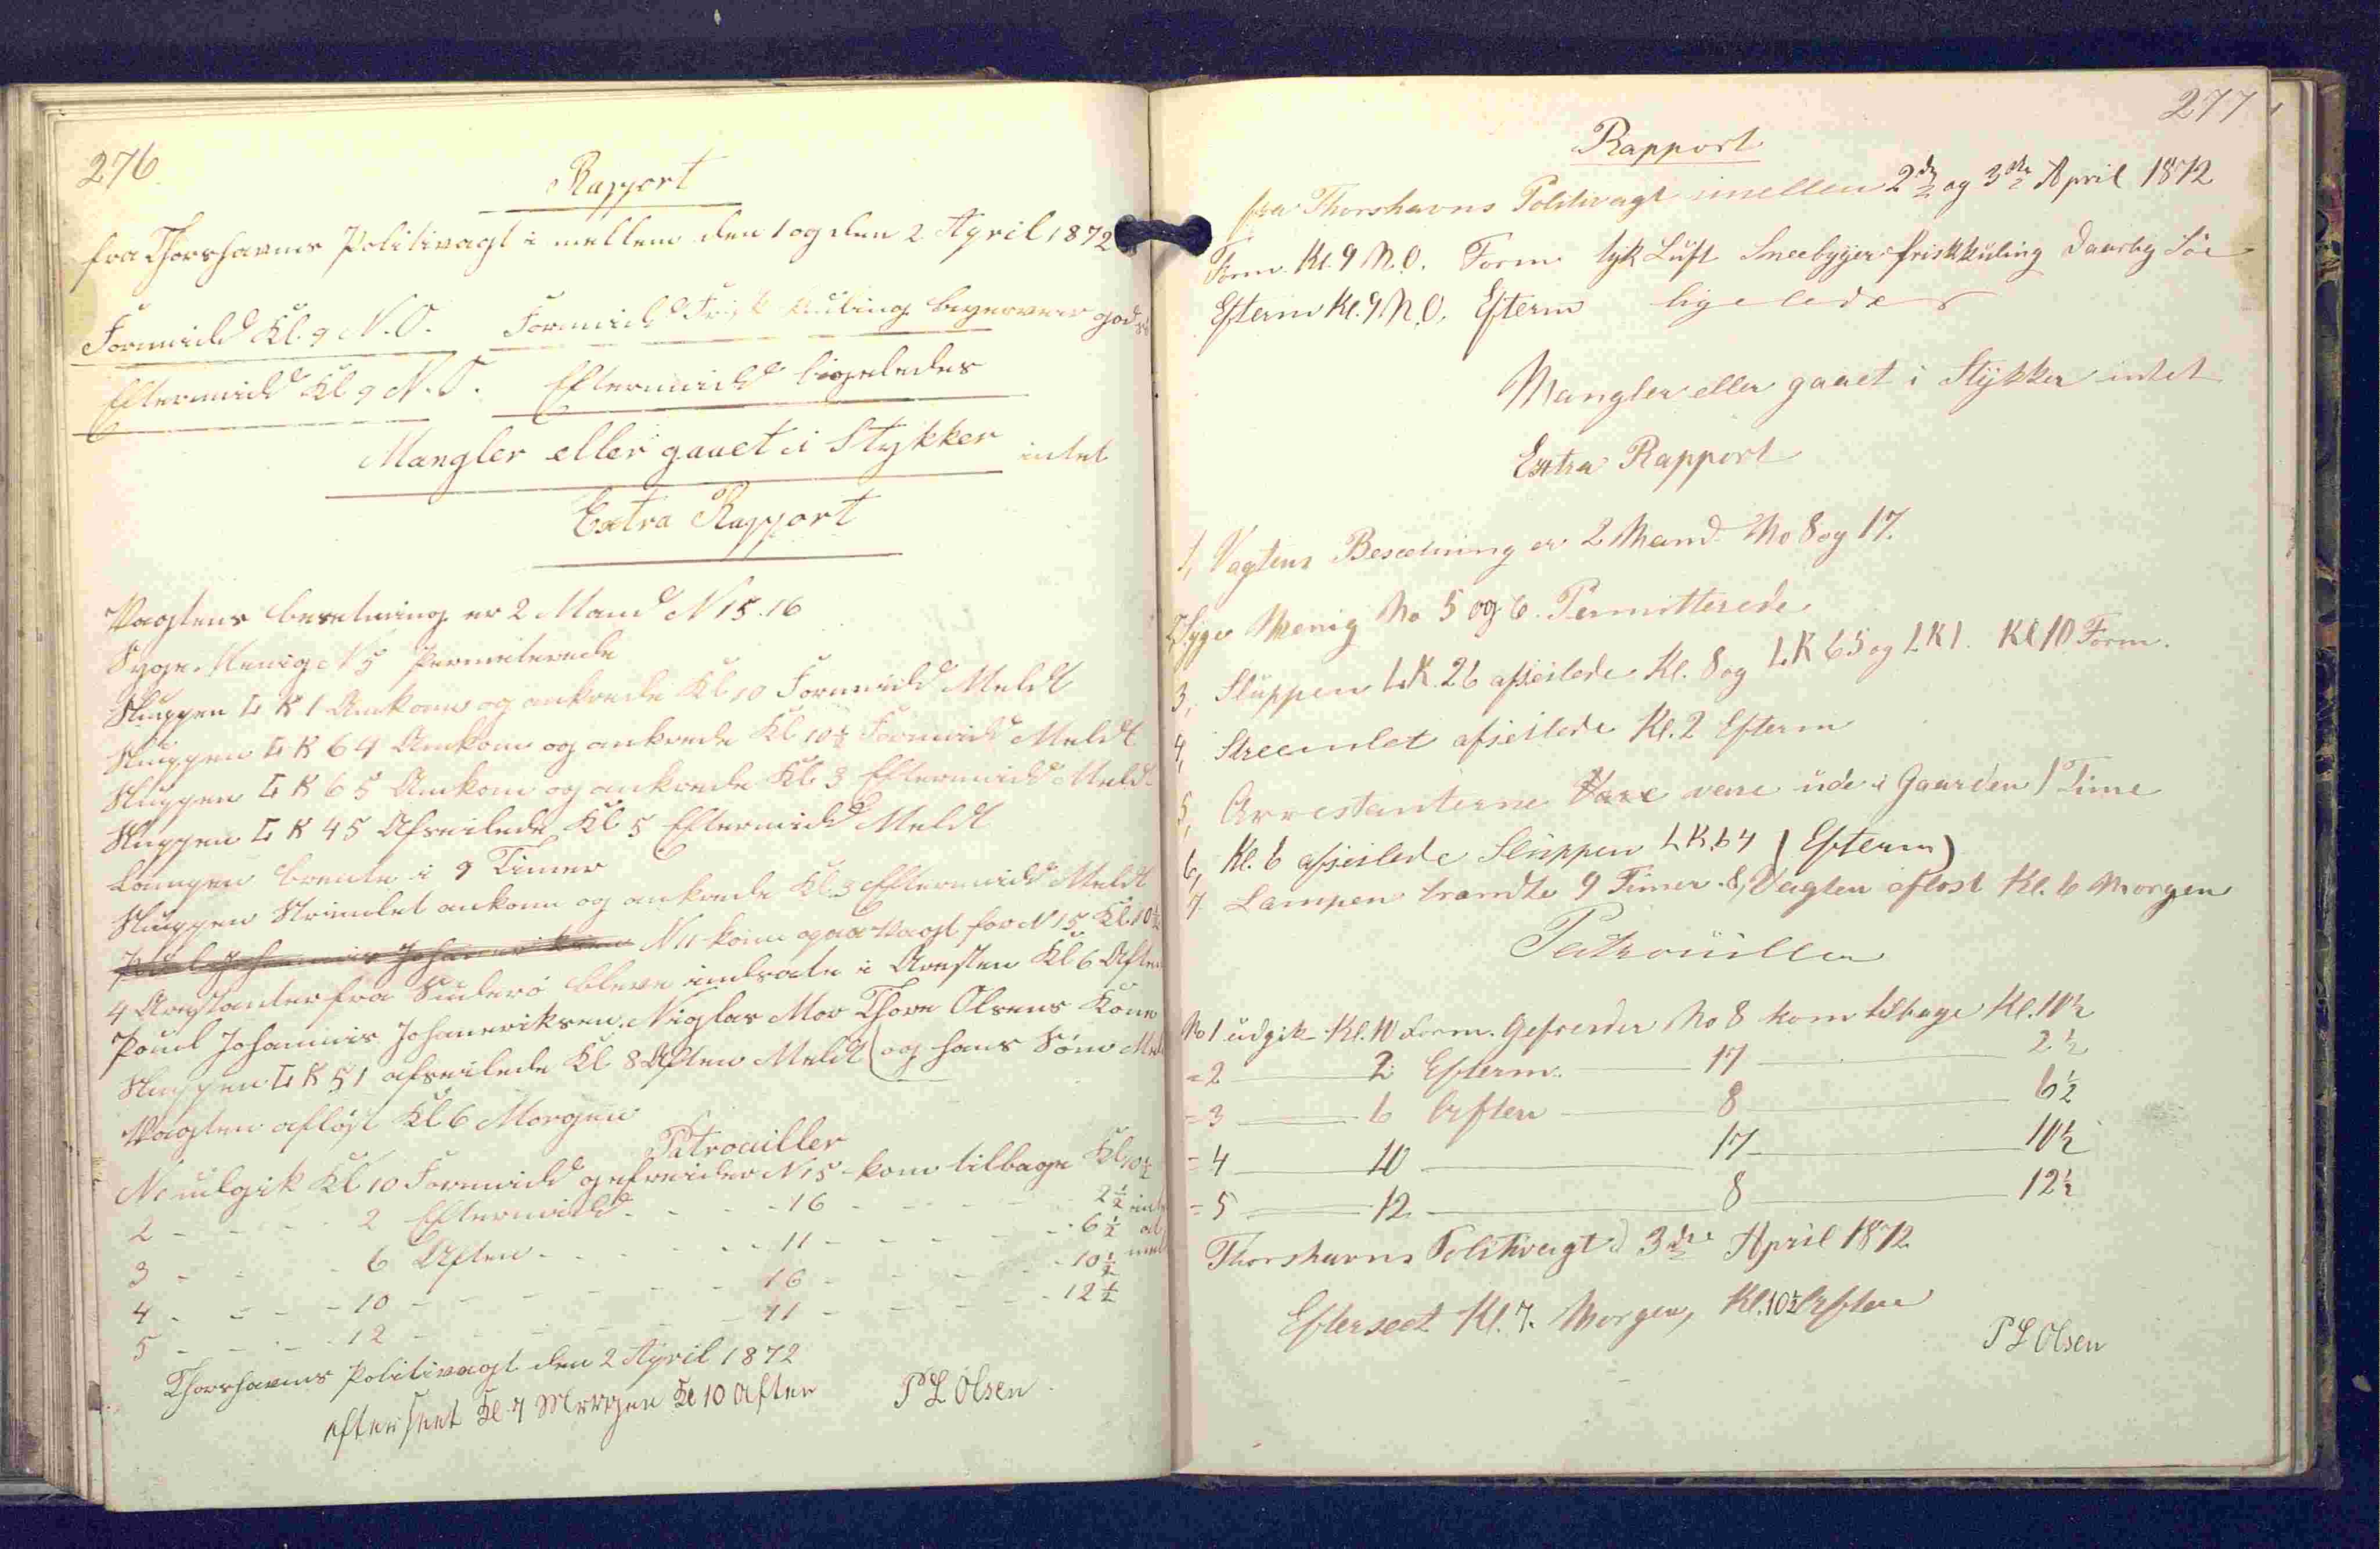 276
Rapport
fra Thorshavns Politivagt i mellem den 1 og den 2 April 1872
Formidd Kl. 9 N.O. Formidd Frisk Kuling bygerveir god
Eftermidd Kl 9 N.O. Eftermidd ligeledes
Mangler eller gaaet i Stykker intet
Extra Rapport
Vagtens besetning er 2 Mand N 15.16
Syge. Menig N 5 Permiterede
Sluppen L K 1 Ankom og ankrede Kl 10 Formidd Meldt
Sluppen L K 64 Ankom og ankrede Kl 10½ Formidd Meldt
Sluppen L K 65 Ankom og ankrede Kl 3 Eftermidd Meldt
Sluppen L K 45 Afseilede Kl 5 Eftermidd Meldt
Lampen brente i 9 Timer
Sluppen Strimlet ankom og ankrede Kl. 3 Eftermidd Meldt
Poul Johannis Johaneriksen N 11 kom opaa Vagt for N 15 Kl. 10½
4 Arestanter fra Suderö bleve indsate i Aresten Kl 6 Aften
Poul Johannis Johaneriksen. Niglas Mor Thore Olsens Kone
Sluppen L K 51 afseilede Kl 8 Aften Meldt (og hans Sönn
Vagten afløst Kl 6 Morgen
Patrouiller
N 1 udgik Kl 10 Formidd gefreider N 15 kom tilbage Kl 10½
2 - - - 2 Eftermidd - - - 16 - - - 2½
3 - - - 6 Aften - - - 11 - - - 6½
4 - - - 10 - - - 16 - - - 10½
5 - - - 12 - - - 11 - - - 12½
Thorshavns Politivagt den 2 April 1872
efterseet Kl 7 Morgen Kl 10 Aften P L Olsen
277
Rapport
fra Thorshavns Politivagt imellem 2den og 3die April 1872
Form. Kl. 9 N.O. Form tyk Lüft Sneebyger friskküling Söe
Efterm Kl. 9 N.O. Efterm ligeledes
Mangler eller gaaet i Stykker intet
Extra Rapport
1, Vagtens Besætning er 2 Mand No 8 og 17.
2, Syge Menig No 5 og 6. Permitterede
3, Slüppen L.K. 26 afseilede Kl. 8 og L.K 65 og L.K 1. Kl 10 Form.
4, Streemlet afseilede Kl. 2 Efterm
5, Arrestanterne Vare vare üde i Gaarden 1 Time
6, Kl. 6 afseilede Slüppen L K 64 (Efterm)
7. Lampen brændte 9 Timer. 8, Vagten aflöst Kl. 6 Morgen
Patroüiller
No 1 üdgik Kl. 10 Form. Gefreider No 8 kom tilbage Kl. 10½
= 2 — 2 Efterm. — 17 — 2½
= 3 — 6 Aften — 8 — 6½
= 4 — 10 — 17 — 10½
= 5 — 12 — 8 — 12½
Thorshavns Politivagt d 3die April 1872
Efterseet Kl. 7. Morgen, Kl. 10½ Aften
P L Olsen